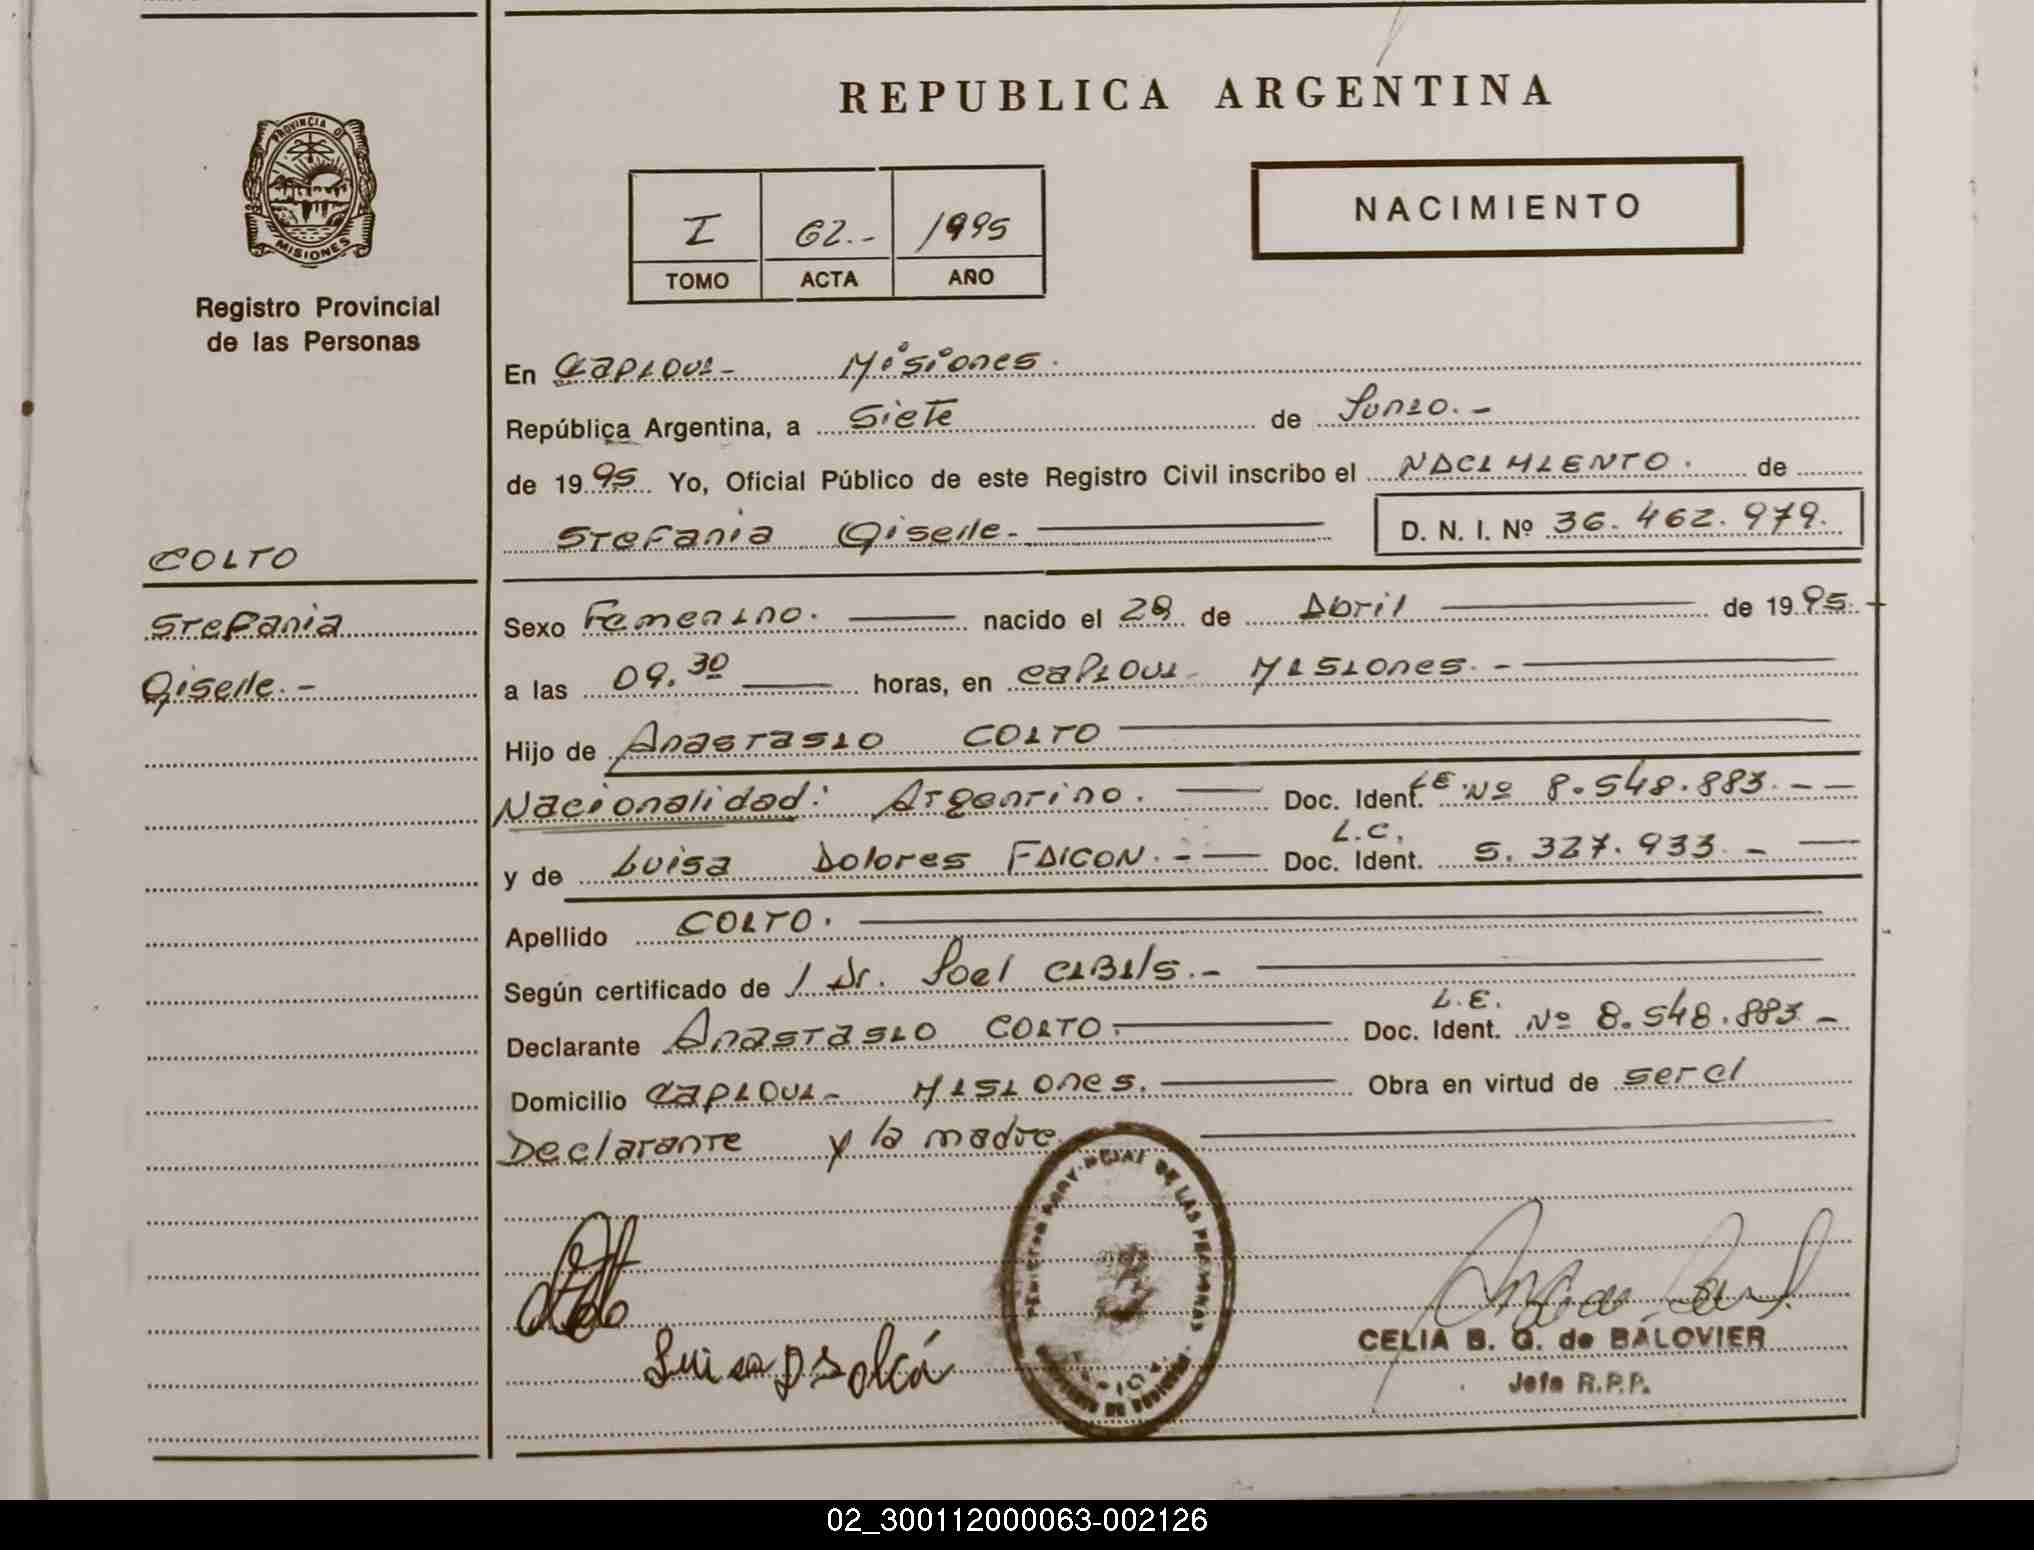 REPUBLICA ARGENTINA
PROVINCIA DE
MISIONES
Registro Provincial
de las Personas
I 62.- 1995
TOMO ACTA AÑO
NACIMIENTO
En Capiovi- Misiones.
República Argentina, a Siete de Junio.-
de 1995 Yo, Oficial Público de este Registro Civil inscribo el NACIMIENTO. de
Stefania Giselle.- D. N. I. Nº 36.462.979.
COLTO
Stefania
Giselle.-
Sexo Femenino. nacido el 28 de Abril de 1995.
a las 09.30 horas, en Capiovi- Misiones.-
Hijo de Anastasio COLTO
Nacionalidad: Argentino. Doc. Ident. LE Nº 8.548.883.--
y de Luisa Dolores FALCON.- Doc. Ident. L.C. 5.327.933.-
Apellido COLTO.
Según certificado de / Dr. Joel CIBILS.-
Declarante Anastasio COLTO. Doc. Ident. L.E. Nº 8.548.883-
Domicilio Capiovi- Misiones. Obra en virtud de ser el
Declarante y la madre
DE LAS PERSONAS
CELIA B. G. de BALOVIER
Jefe R.P.P.
02_300112000063-002126